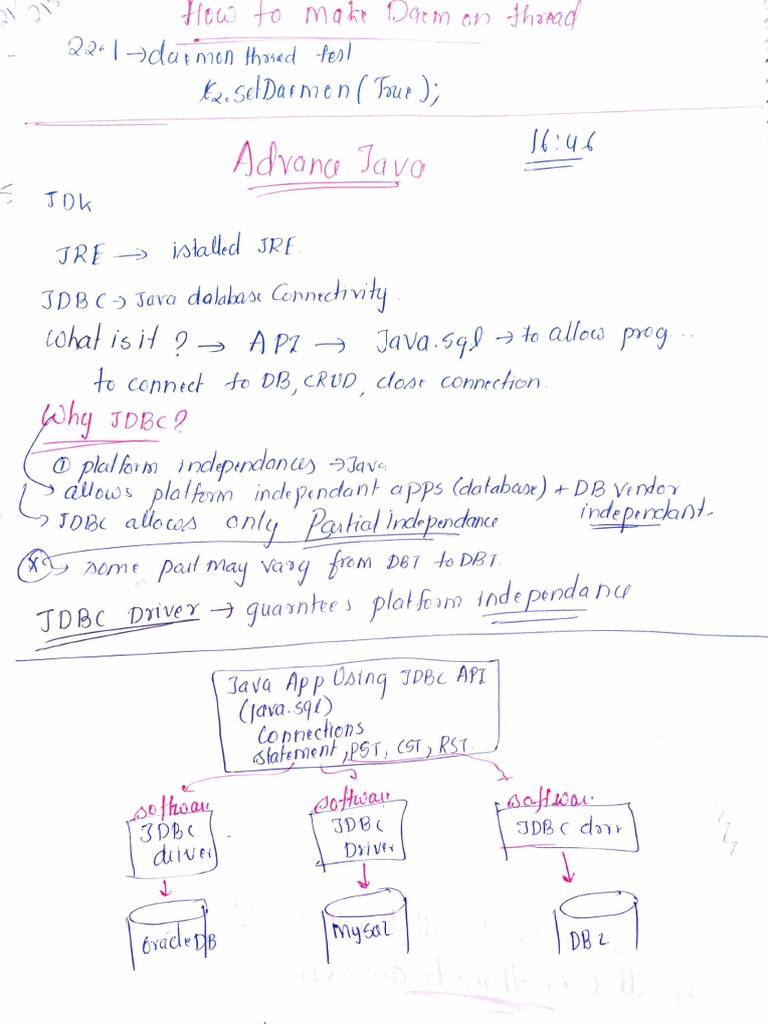 How to make Daemon thread
22.1 → daemon thread test
t2.setDaemon(True);
Advance Java
16:46
JDK
JRE → istalled JRE.
JDBC → Java database Connectivity.
What is it ? → API → Java.sql → to allow prog...
to connect to DB, CRUD, close connection.
Why JDBC?
① platform independances → Java
→ allows platform independant apps (database) + DB Vendor
independant.
→ JDBC allows only Partial Independance
* → some part may vary from DBT to DBT.
JDBC Driver → guarntees platform independance
Java App Using JDBC API
(java.sql)
Connections
statement, PST, CST, RST.
software software software
JDBC JDBC JDBC
driver Driver
OracleDB Mysql DB2